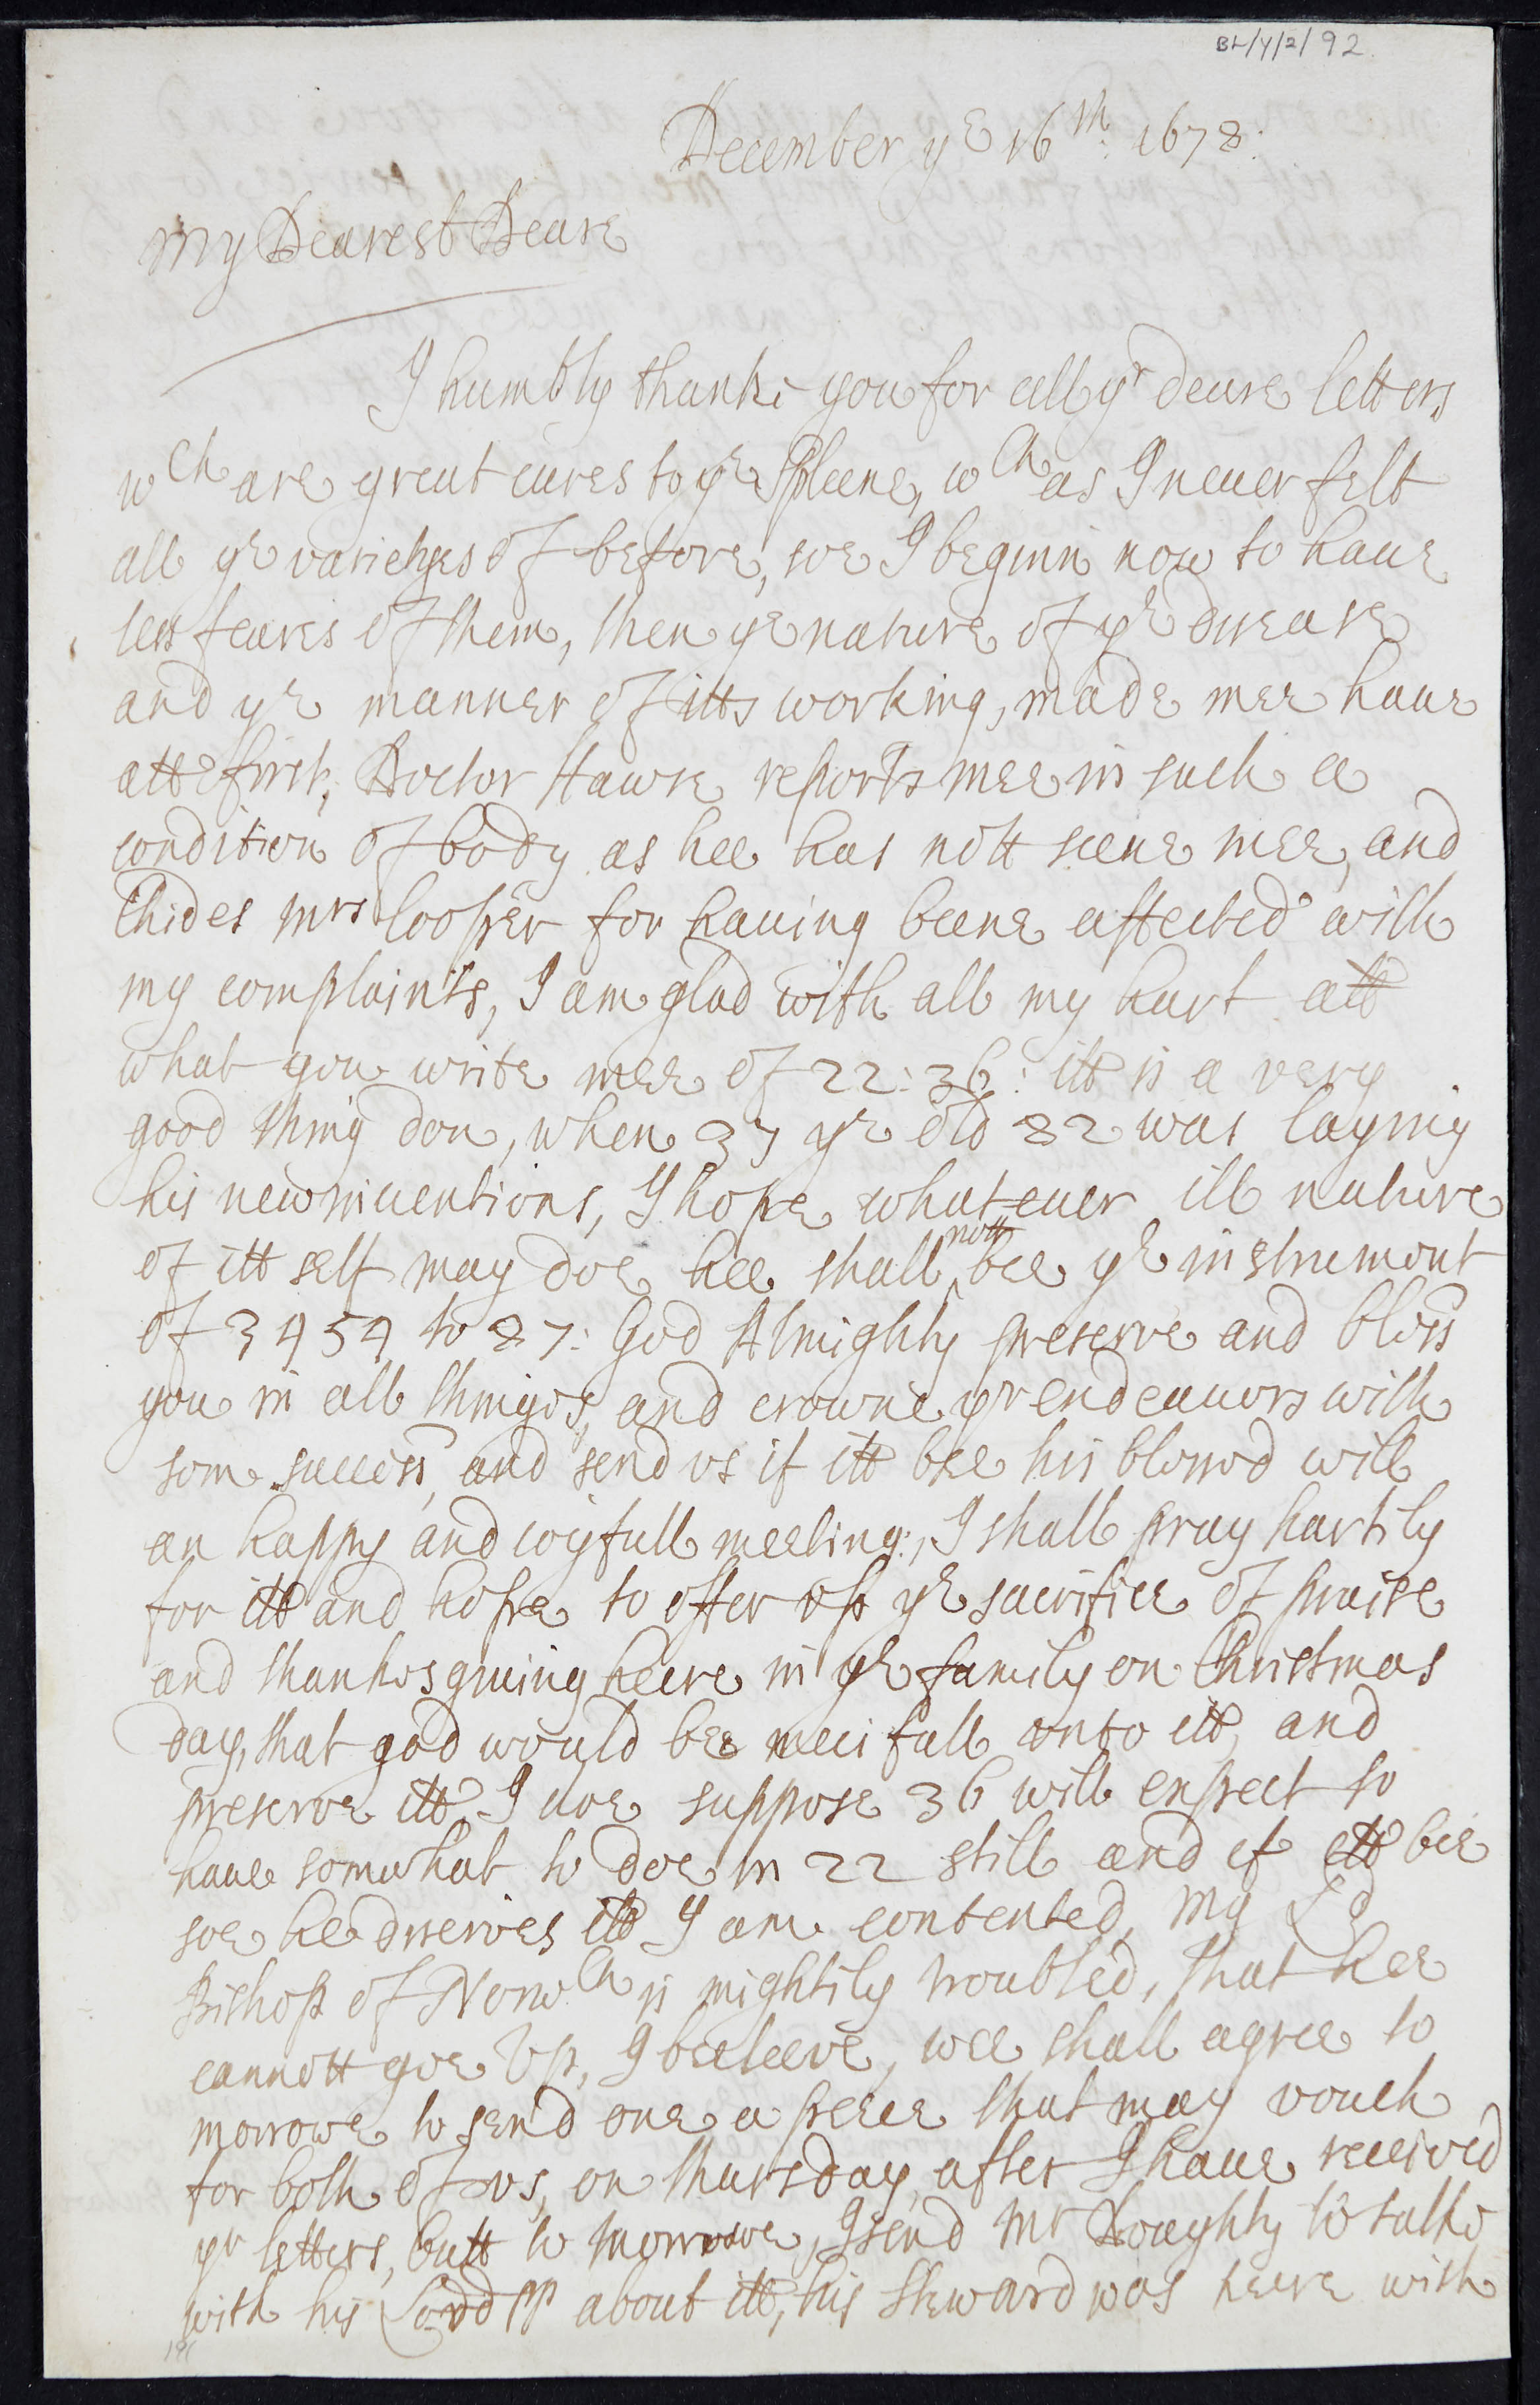 BL/Y/2/92
December ye 16th: 1678:
My Dearest Deare
I humbly thanke you for all yr deare letters
wch are great cures to ye Spleene, wch as I neuer felt
all ye varietyes of before, soe I beginn now to haue
less feares of them, then ye nature of ye disease
and ye manner of itts working, made mee haue
att first, Doctor Hawse reports mee in such a
condition of body as hee has nott seene mee, and
Chides Mrs Cooper for hauing beene affected with
my complaints, I am glad with all my hart att
what you write mee of 22: 36: itt is a very
good thing don, when 37 ye old 82 was laying
his new inuentions, I hope whateuer ill nature
of itt self may doe hee shall nott bee ye instrument
of 3454 to 87: God Almighty preserve and bless
you in all things, and crowne yr endeauors with
som success, and send vs if itt bee his blessed will
an happy and ioyfull meeting:, I shall pray hartily
for itt and hope to offer vp ye sacrifice of praise
and thanksgiuing heere in ye family on Christmas
day, that god would bee mercifull vnto itt, and
preserve itt I doe suppose 36 will expect to
haue somwhat to doe in 22 still and if itt bee
soe hee deserves itt I am contented, My Ld
Bishop of Norwch is mightily troubled, that hee
cannott goe Vp, I beeleeve, wee shall agree to
morrowe to send one a peece that may vouch
for both of vs, on thursday, after I haue received
yr letters, butt to morrowe, I send Mr Doughty to talke
with his Lordpp about itt, his Steward was heere with
191